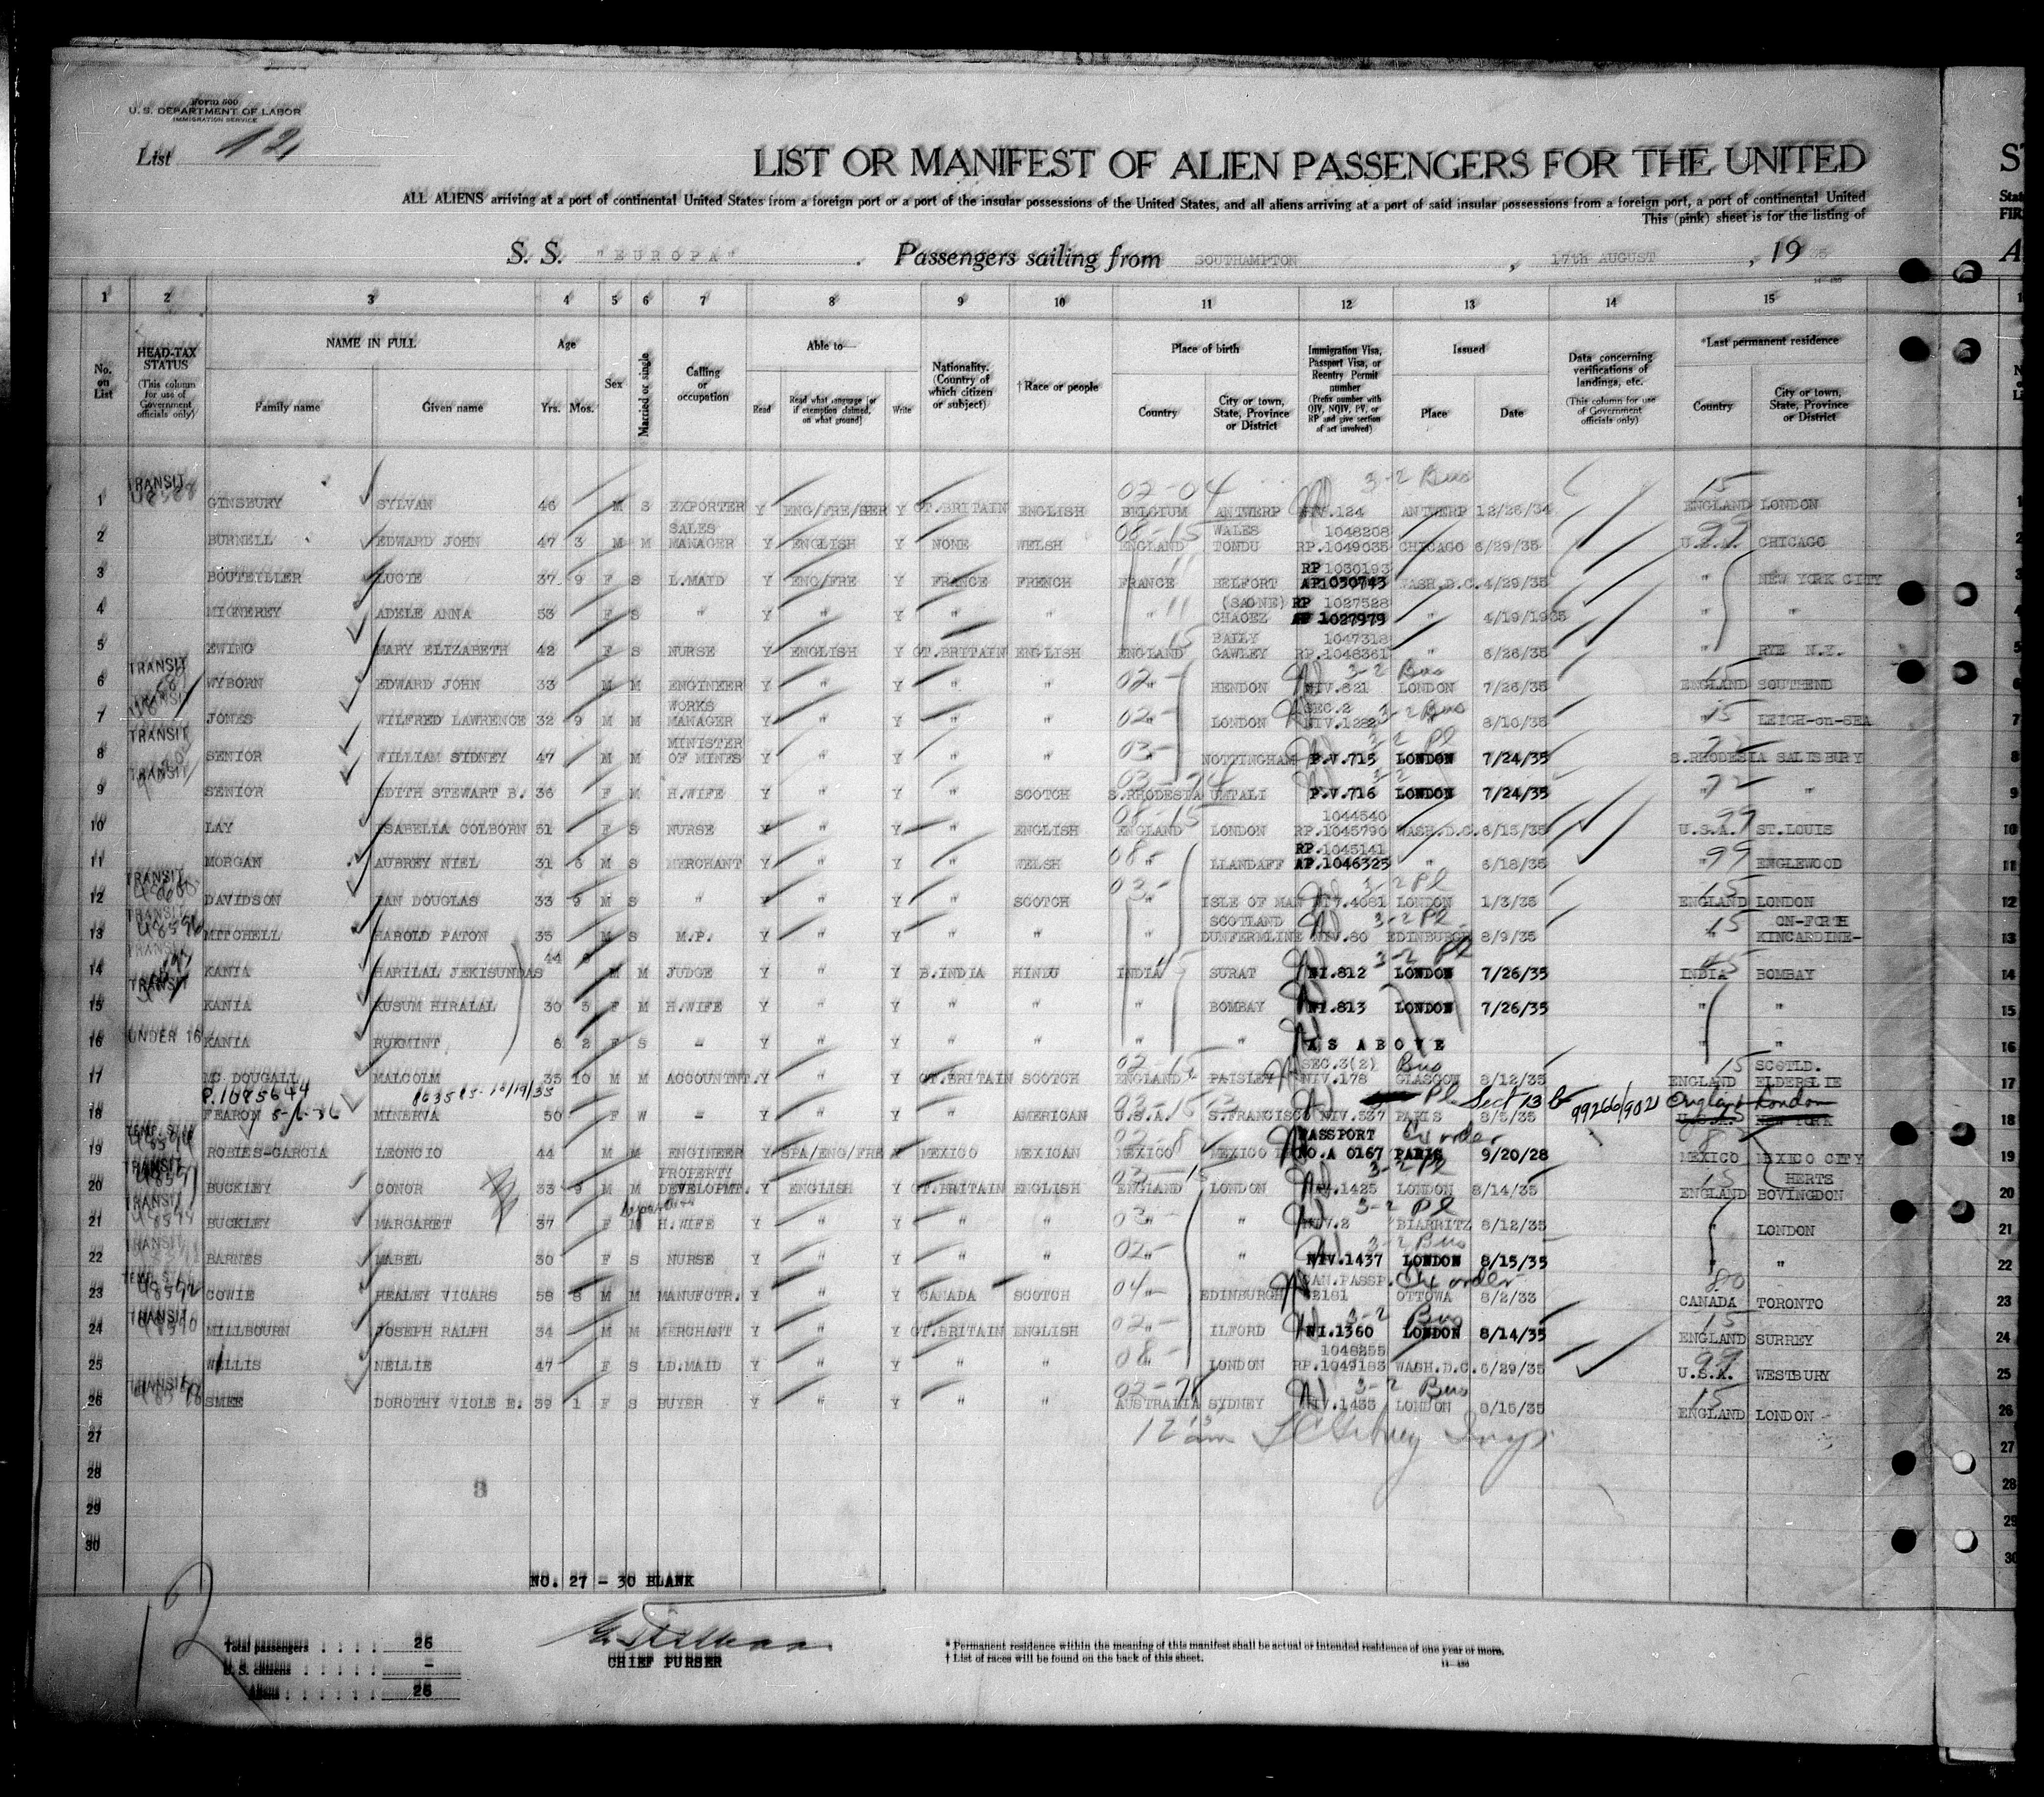 Form 500
U. S. DEPARTMENT OF LABOR
IMMIGRATION SERVICE
List 12
LIST OR MANIFEST OF ALIEN PASSENGERS FOR THE UNITED
ALL ALIENS arriving at a port of continental United States from a foreign port or a port of the insular possessions of the United States, and all aliens arriving at a port of said insular possessions from a foreign port, a port of continental United
This (pink) sheet is for the listing of
S. S. "EUROPA" Passengers sailing from SOUTHAMPTON, 17th AUGUST, 1935
1 2 3 4 5 6 7 8 9 10 11 12 13 14 15
No. on List
HEAD-TAX STATUS (This column for use of Government officials only)
NAME IN FULL
Family name Given name
Age
Yrs. Mos.
Sex
Married or single
Calling or occupation
Able to—
Read
Read what language [or if exemption claimed, on what ground]
Write
Nationality. (Country of which citizen or subject)
†Race or people
Place of birth
Country
City or town, State, Province or District
Immigration Visa, Passport Visa, or Reentry Permit number
(Prefix number with QIV, NQIV, PV, or RP and give section of act involved)
Issued
Place Date
Data concerning verifications of landings, etc.
(This column for use of Government officials only)
*Last permanent residence
Country
City or town, State, Province or District
TRANSIT 02-04 3-2 Bus 15
1 GINSBURY SYLVAN 46 M S EXPORTER Y ENG/FRE/GER Y GT.BRITAIN ENGLISH BELGIUM ANTWERP NIV.124 ANTWERP 12/26/34 ENGLAND LONDON
SALES 08-15 WALES 1048208 99
2 BURNELL EDWARD JOHN 47 3 M M MANAGER Y ENGLISH Y NONE WELSH ENGLAND TONDU RP.1049035 CHICAGO 6/29/35 U.S.A. CHICAGO
RP 1030193
3 BOUTEILLER LUCIE 37 9 F S L.MAID Y ENG/FRE Y FRANCE FRENCH FRANCE BELFORT AP1030743 WASH.D.C. 4/29/35 " NEW YORK CITY
(SAONE) RP 1027528
4 MIGNEREY ADELE ANNA 53 F S " Y " Y " " " 1027979 " 4/19/1935 " "
15 BAILY 1047318
5 EWING MARY ELIZABETH 42 F S NURSE Y ENGLISH Y GT.BRITAIN ENGLISH ENGLAND GAWLEY RP.1048361 " 6/26/35 " RYE N.Y.
TRANSIT 3-2 Bus 15
6 WYBORN EDWARD JOHN 33 M M ENGINEER Y " Y " " 02- " HENDON NIV.821 LONDON 7/26/35 ENGLAND SOUTHEND
TRANSIT WORKS SEC.2 3-2 Bus
7 JONES WILFRED LAWRENCE 32 9 M M MANAGER Y " Y " " 02- " LONDON NIV.1282 " 8/10/35 15 LEIGH-on-SEA
TRANSIT MINISTER 3-2 Pl
8 SENIOR WILLIAM SIDNEY 47 M M OF MINES Y " Y " " 03- NOTTINGHAM P.V.715 LONDON 7/24/35 S.RHODESIA SALISBURY
TRANSIT 03-74 3-2
9 SENIOR EDITH STEWART B. 36 F M H.WIFE Y " Y " SCOTCH S.RHODESIA UMTALI P.V.716 LONDON 7/24/35 " 72 "
08-15 1044540 99
10 LAY ISABELLA COLBORN 51 F S NURSE Y " Y " ENGLISH ENGLAND LONDON RP.1045790 WASH.D.C. 6/15/35 U.S.A. ST.LOUIS
RP.1045141
11 MORGAN AUBREY NIEL 31 6 M S MERCHANT Y " Y " WELSH 08- " LLANDAFF AP.1046325 " 6/18/35 " 99 ENGLEWOOD
TRANSIT 3-2 Pl 15
12 DAVIDSON IAN DOUGLAS 33 9 M S " Y " Y " SCOTCH 03- " ISLE OF MAN NIV.4081 LONDON 1/3/35 ENGLAND LONDON
TRANSIT SCOTLAND 3-2 Pl ON-FORTH
13 MITCHELL HAROLD PATON 35 M S M.P. Y " Y " " " DUNFERMLINE NIV.80 EDINBURGH 8/9/35 15 KINCARDINE-
TRANSIT 3-2 Pl
14 KANIA HARILAL JEKISUNDAS 44 M M JUDGE Y " Y B.INDIA HINDU INDIA 45 SURAT NI.812 LONDON 7/26/35 INDIA 45 BOMBAY
TRANSIT
15 KANIA KUSUM HIRALAL 30 5 F M H.WIFE Y " Y " " " BOMBAY NI.813 LONDON 7/26/35 " "
16 UNDER 16 KANIA RUKMINT 6 2 F S - Y " Y " " " " AS ABOVE " "
02-15 SEC.3(2) Bus 15 SCOTLD.
17 MC DOUGALL MALCOLM 35 10 M M ACCOUNTNT. Y " Y GT.BRITAIN SCOTCH ENGLAND PAISLEY NIV.178 GLASGOW 8/12/35 ENGLAND ELDERSLIE
P.1085644 Pl Sect 13 b 99266/9021 England London
18 FEARON 5-/-36 MINERVA 50 F W - Y " Y " AMERICAN U.S.A. S.FRANCISCO NIV.537 PARIS 8/5/35 U.S.A. NEW YORK
PASSPORT Ex order
19 ROBLES-GARCIA LEONCIO 44 M M ENGINEER Y SPA/ENG/FRE Y MEXICO MEXICAN MEXICO MEXICO NO.A 0167 PARIS 9/20/28 MEXICO MEXICO CITY
TRANSIT PROPERTY 03-15 3-2 Pl 15 HERTS
20 BUCKLEY CONOR 33 9 M M DEVELOPMT. Y ENGLISH Y GT.BRITAIN ENGLISH ENGLAND LONDON NIV.1425 LONDON 8/14/35 ENGLAND BOVINGDON
TRANSIT separated 3-2 Pl
21 BUCKLEY MARGARET 37 F M H.WIFE Y " Y " " 03- " NIV.2 BIARRITZ 8/12/35 " LONDON
TRANSIT 3-2 Bus
22 BARNES MABEL 30 F S NURSE Y " Y " " 02- " " NIV.1437 LONDON 8/15/35 " "
CAN.PASSP. Ex order 80
23 COWIE HEALEY VICARS 58 8 M M MANUFCTR. Y " Y CANADA SCOTCH 04- EDINBURGH 2181 OTTOWA 8/2/33 CANADA TORONTO
TRANSIT 02- 3-2 Bus 15
24 MILLBOURN JOSEPH RALPH 34 M M MERCHANT Y " Y GT.BRITAIN ENGLISH " ILFORD NI.1360 LONDON 8/14/35 ENGLAND SURREY
08- 1048255 99
25 WELLIS NELLIE 47 F S LD.MAID Y " Y " " " LONDON RP.1049183 WASH.D.C. 6/29/35 U.S.A. WESTBURY
TRANSIT 02-78 3-2 Bus 15
26 SMEE DOROTHY VIOLE E. 39 1 F S BUYER Y " Y " " AUSTRALIA SYDNEY NIV.1435 LONDON 8/15/35 ENGLAND LONDON
27
28
29
30
NO. 27 - 30 BLANK
12
Total passengers 26
U. S. citizens -
Aliens 26
CHIEF PURSER
* Permanent residence within the meaning of this manifest shall be actual or intended residence of one year or more.
† List of races will be found on the back of this sheet.
14—480